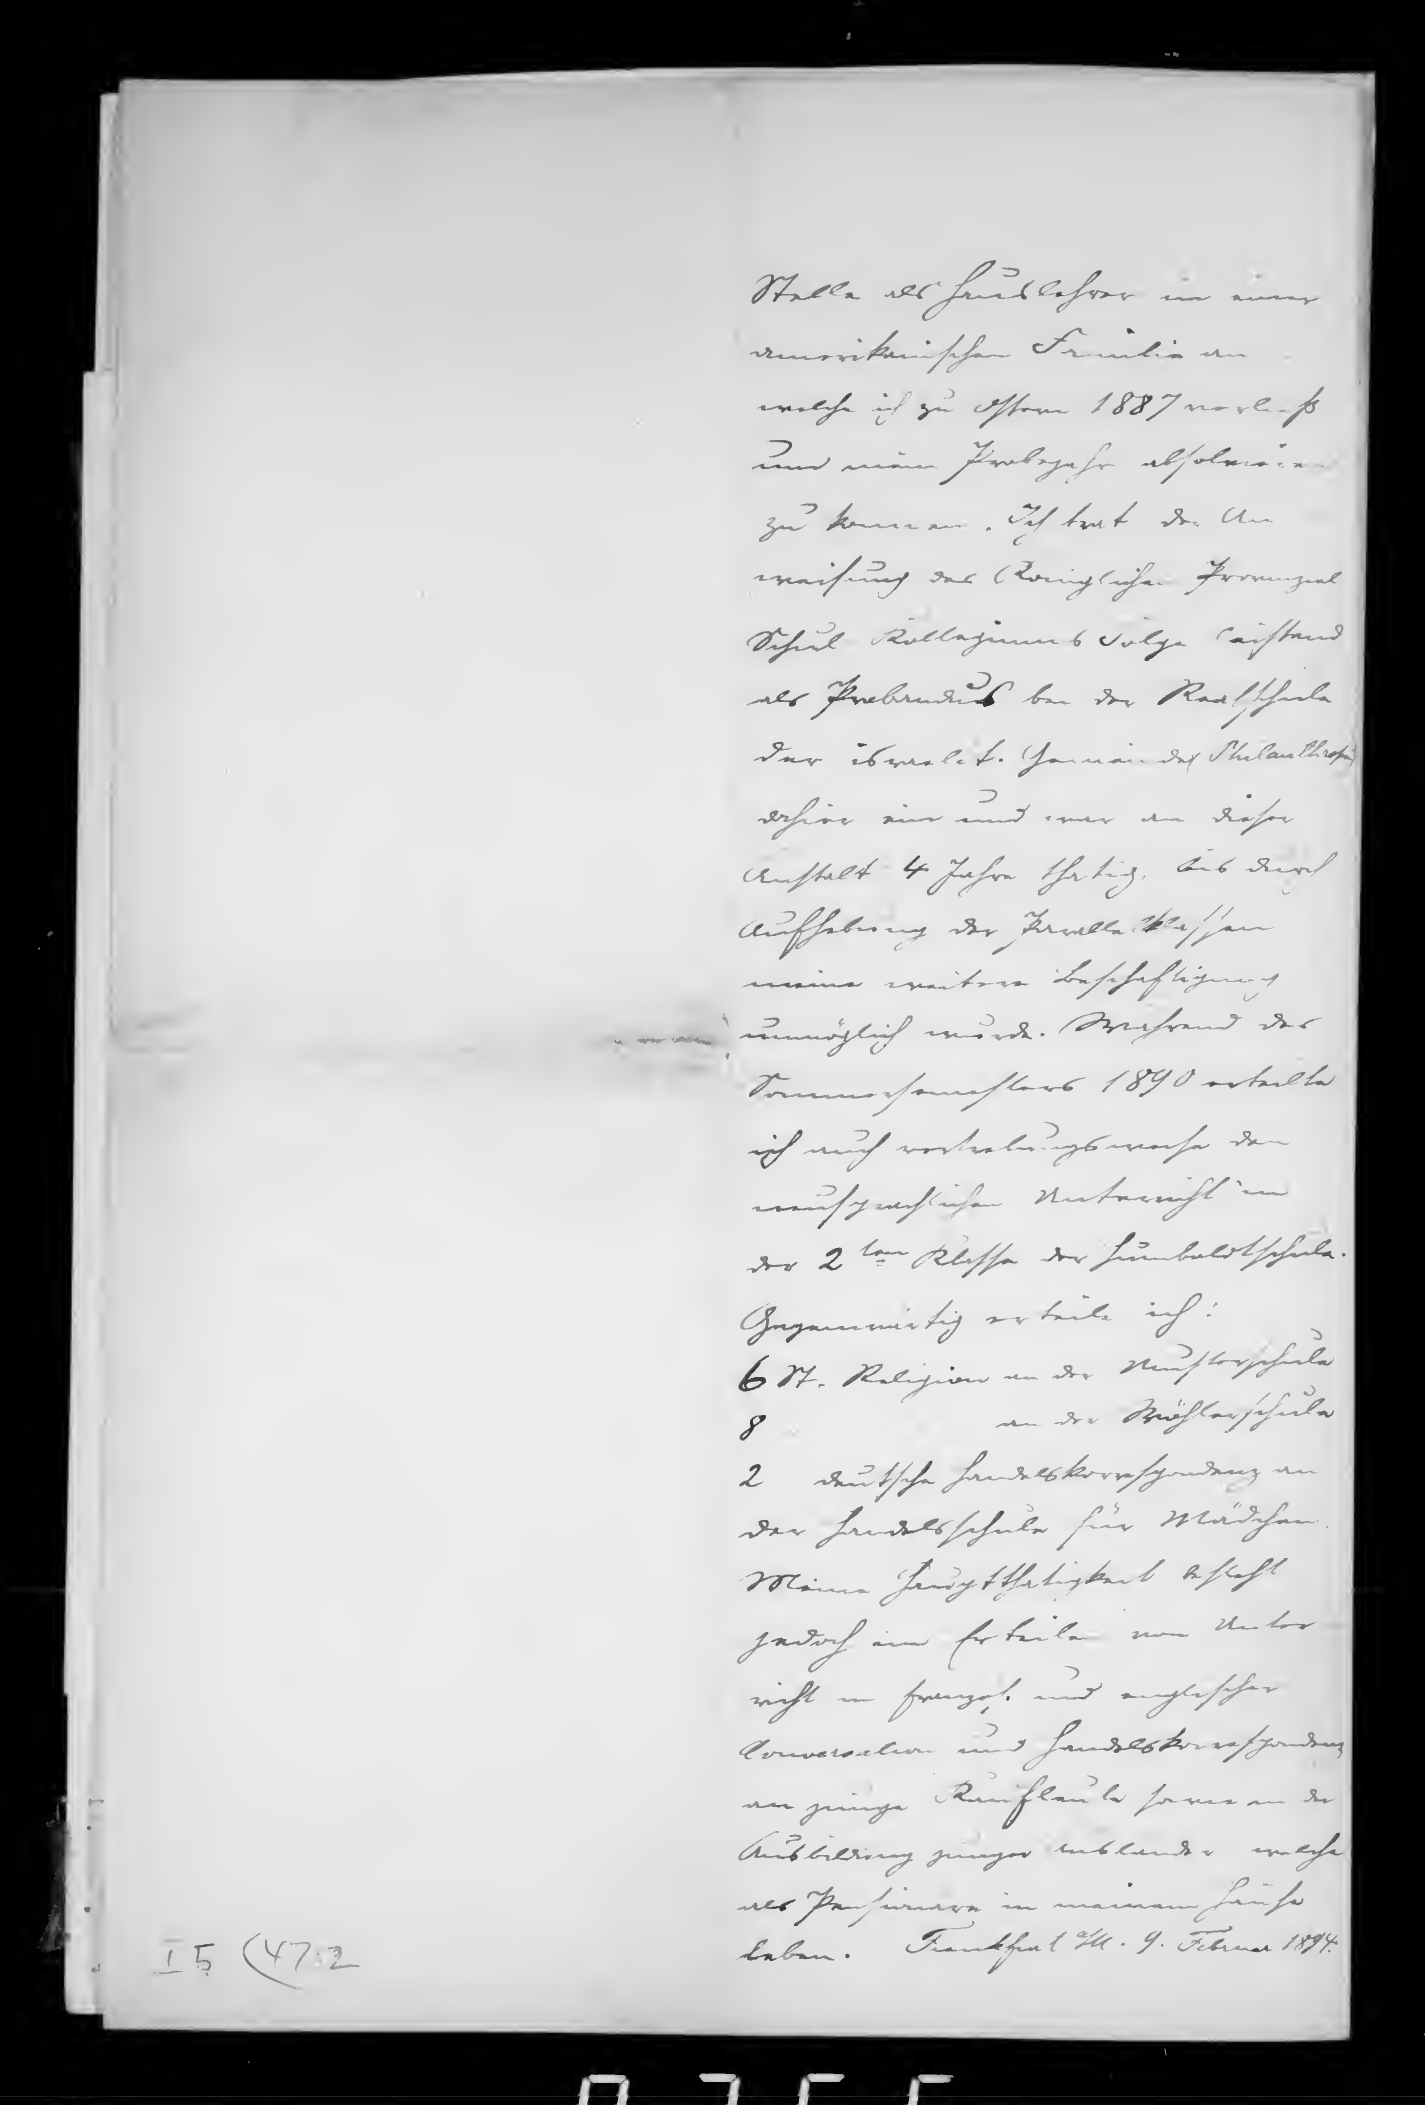 Stelle als Hauslehrer in einer
amerikanischen Familie an
welche ich zu Ostern 1887 verließ
um mein Probejahr absolvieren
zu konnen. Ich trat der An
weisung des Königlichen Provinzial
Schul Kollegiums Folge leistend
als Probandus bei der Realschule
der israelit. Gemeinde (Philanthropin)
dahier ein und war an dieser
Anstalt 4 Jahre thatig, bis durch
Aufhebung der Parallelklassen
meine weitere Beschaftigung
unmöglich wurde. Wahrend des
Sommersemesters 1890 erteilte
ich auch vertretungsweise den
neusprachlichen Unterricht in
der 2ten Klasse der Humboldtschule.
Gegenwärtig erteile ich:
6 St. Religion an der Musterschule
8 an der Wöhlerschule
2 deutsche Handelskorrespondenz an
der Handelsschule für Mädchen.
Meine Haupttatigkeit besteht
jedoch im Erteilen von Unter
richt in französ. und englischer
Conversation und Handelskorrespondenz
an junge Kaufleute sowie in der
Ausbildung junger Auslander welche
als Pensionare in meinem Hause
leben. Frankfurt a/M. 9. Februar 1894.
I 5 (47:2